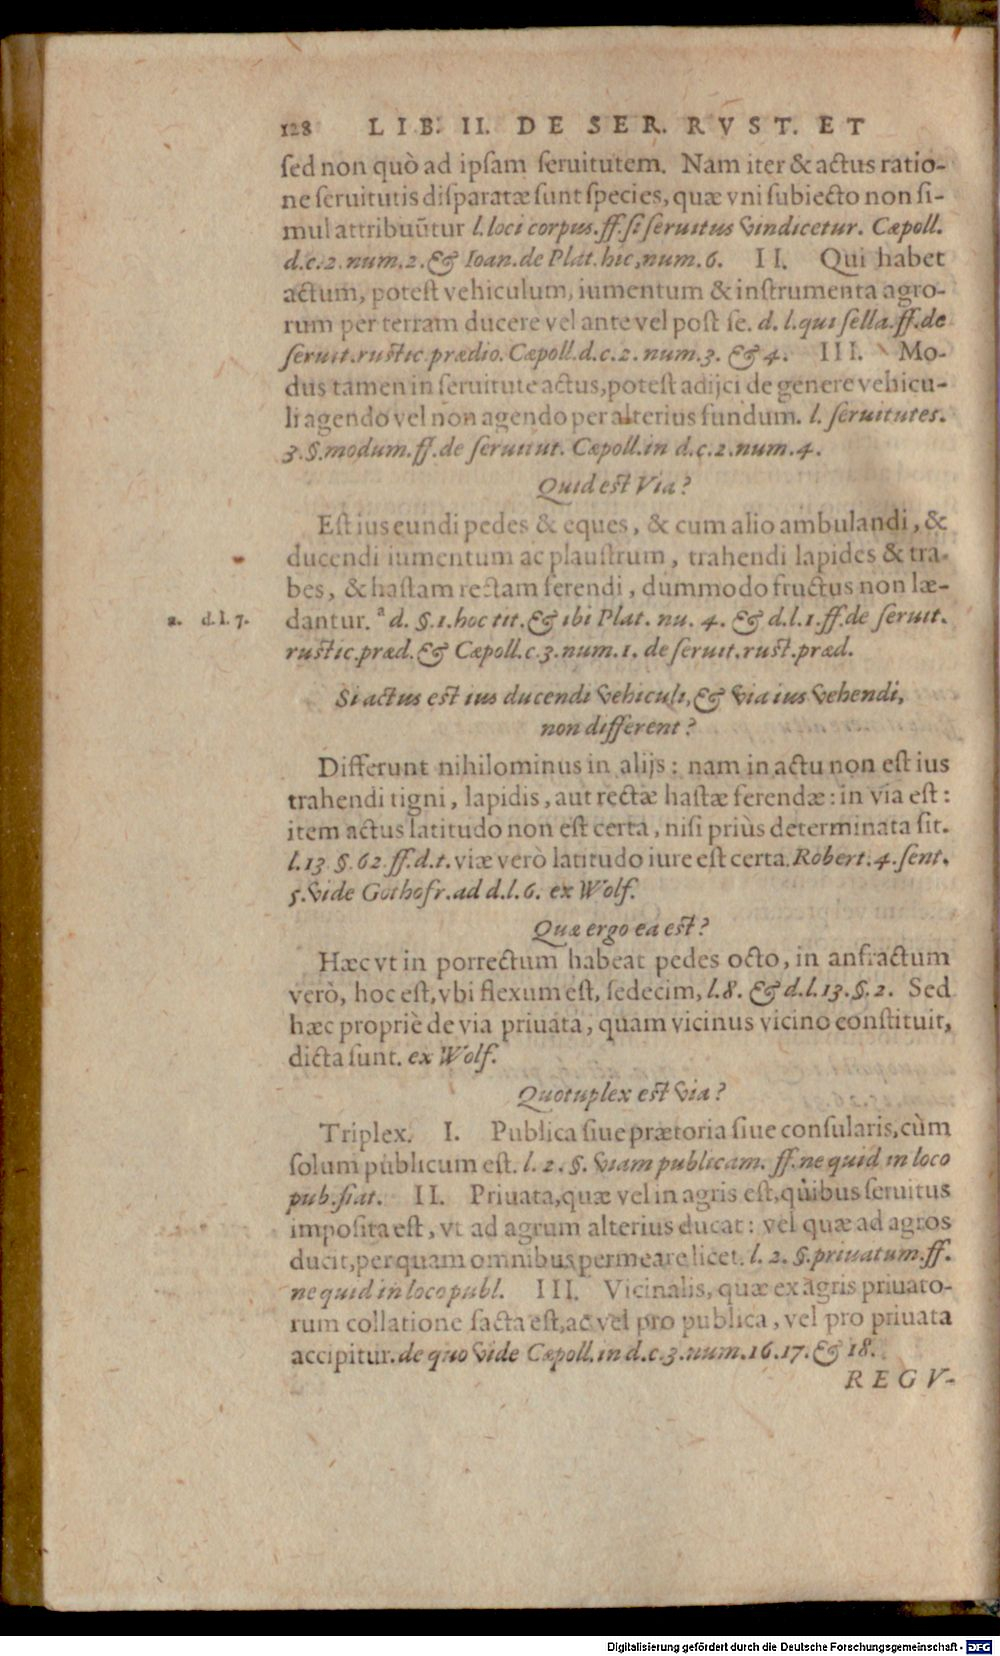 128 LIB. II. DE SER. RVST. ET
ſed non quò ad ipſam ſeruitutem. Nam iter & actus ratio-
ne ſeruitutis diſparatæ ſunt ſpecies, quæ vni ſubiecto non ſi-
mul attribuũtur l. loci corpus. ff. ſi ſeruitus vindicetur. Cæpoll.
d.c.2.num.2.& Ioan.de Plat.hic,num.6. II. Qui habet
actum, poteſt vehiculum, iumentum & inſtrumenta agro-
rum per terram ducere vel ante vel poſt ſe. d. l.qui ſella.ff.de
ſeruit.ruſtic.prædio.Cæpoll.d.c.2.num.3. & 4. III. Mo-
dus tamen in ſeruitute actus,poteſt adijci de genere vehicu-
li agendo vel non agendo per alterius fundum. l. ſeruitutes.
3.§.modum.ff.de ſeruitut. Cæpoll.in d.c.2.num.4.
Quid eſt Via?
Eſt ius eundi pedes & eques, & cum alio ambulandi, &
ducendi iumentum ac plauſtrum, trahendi lapides & tra-
bes, & haſtam rectam ferendi, dummodo fructus non læ-
a. d.l.7. dantur.ª d. §.1.hoc tit.& ibi Plat. nu. 4. & d.l.1.ff.de ſeruit.
ruſtic.præd.& Cæpoll.c.3.num.1. de ſeruit.ruſt.præd.
Si actus eſt ius ducendi vehiculi,& via ius vehendi,
non different?
Differunt nihilominus in alijs: nam in actu non eſt ius
trahendi tigni, lapidis, aut rectæ haſtæ ferendæ: in via eſt:
item actus latitudo non eſt certa, niſi priùs determinata ſit.
l.13.§.62.ff.d.t.viæ verò latitudo iure eſt certa.Robert.4.ſent.
5.vide Gothofr.ad d.l.6. ex Wolf.
Quæ ergo ea eſt?
Hæc vt in porrectum habeat pedes octo, in anfractum
verò, hoc eſt,vbi flexum eſt, ſedecim,l.8. & d.l.13.§.2. Sed
hæc propriè de via priuata, quam vicinus vicino conſtituit,
dicta ſunt. ex Wolf.
Quotuplex eſt via?
Triplex. I. Publica ſiue prætoria ſiue conſularis,cùm
ſolum publicum eſt. l. 2. §. viam publicam. ff.ne quid in loco
pub.fiat. II. Priuata,quæ vel in agris eſt,quibus ſeruitus
impoſita eſt, vt ad agrum alterius ducat: vel quæ ad agros
ducit,per quam omnibus permeare licet. l. 2. §.priuatum.ff.
ne quid in loco publ. III. Vicinalis, quæ ex agris priuato-
rum collatione facta eſt,ac vel pro publica, vel pro priuata
accipitur.de quo vide Cæpoll.in d.c.3.num.16.17.& 18.
REGV-
Digitalisierung gefördert durch die Deutsche Forschungsgemeinschaft - DFG